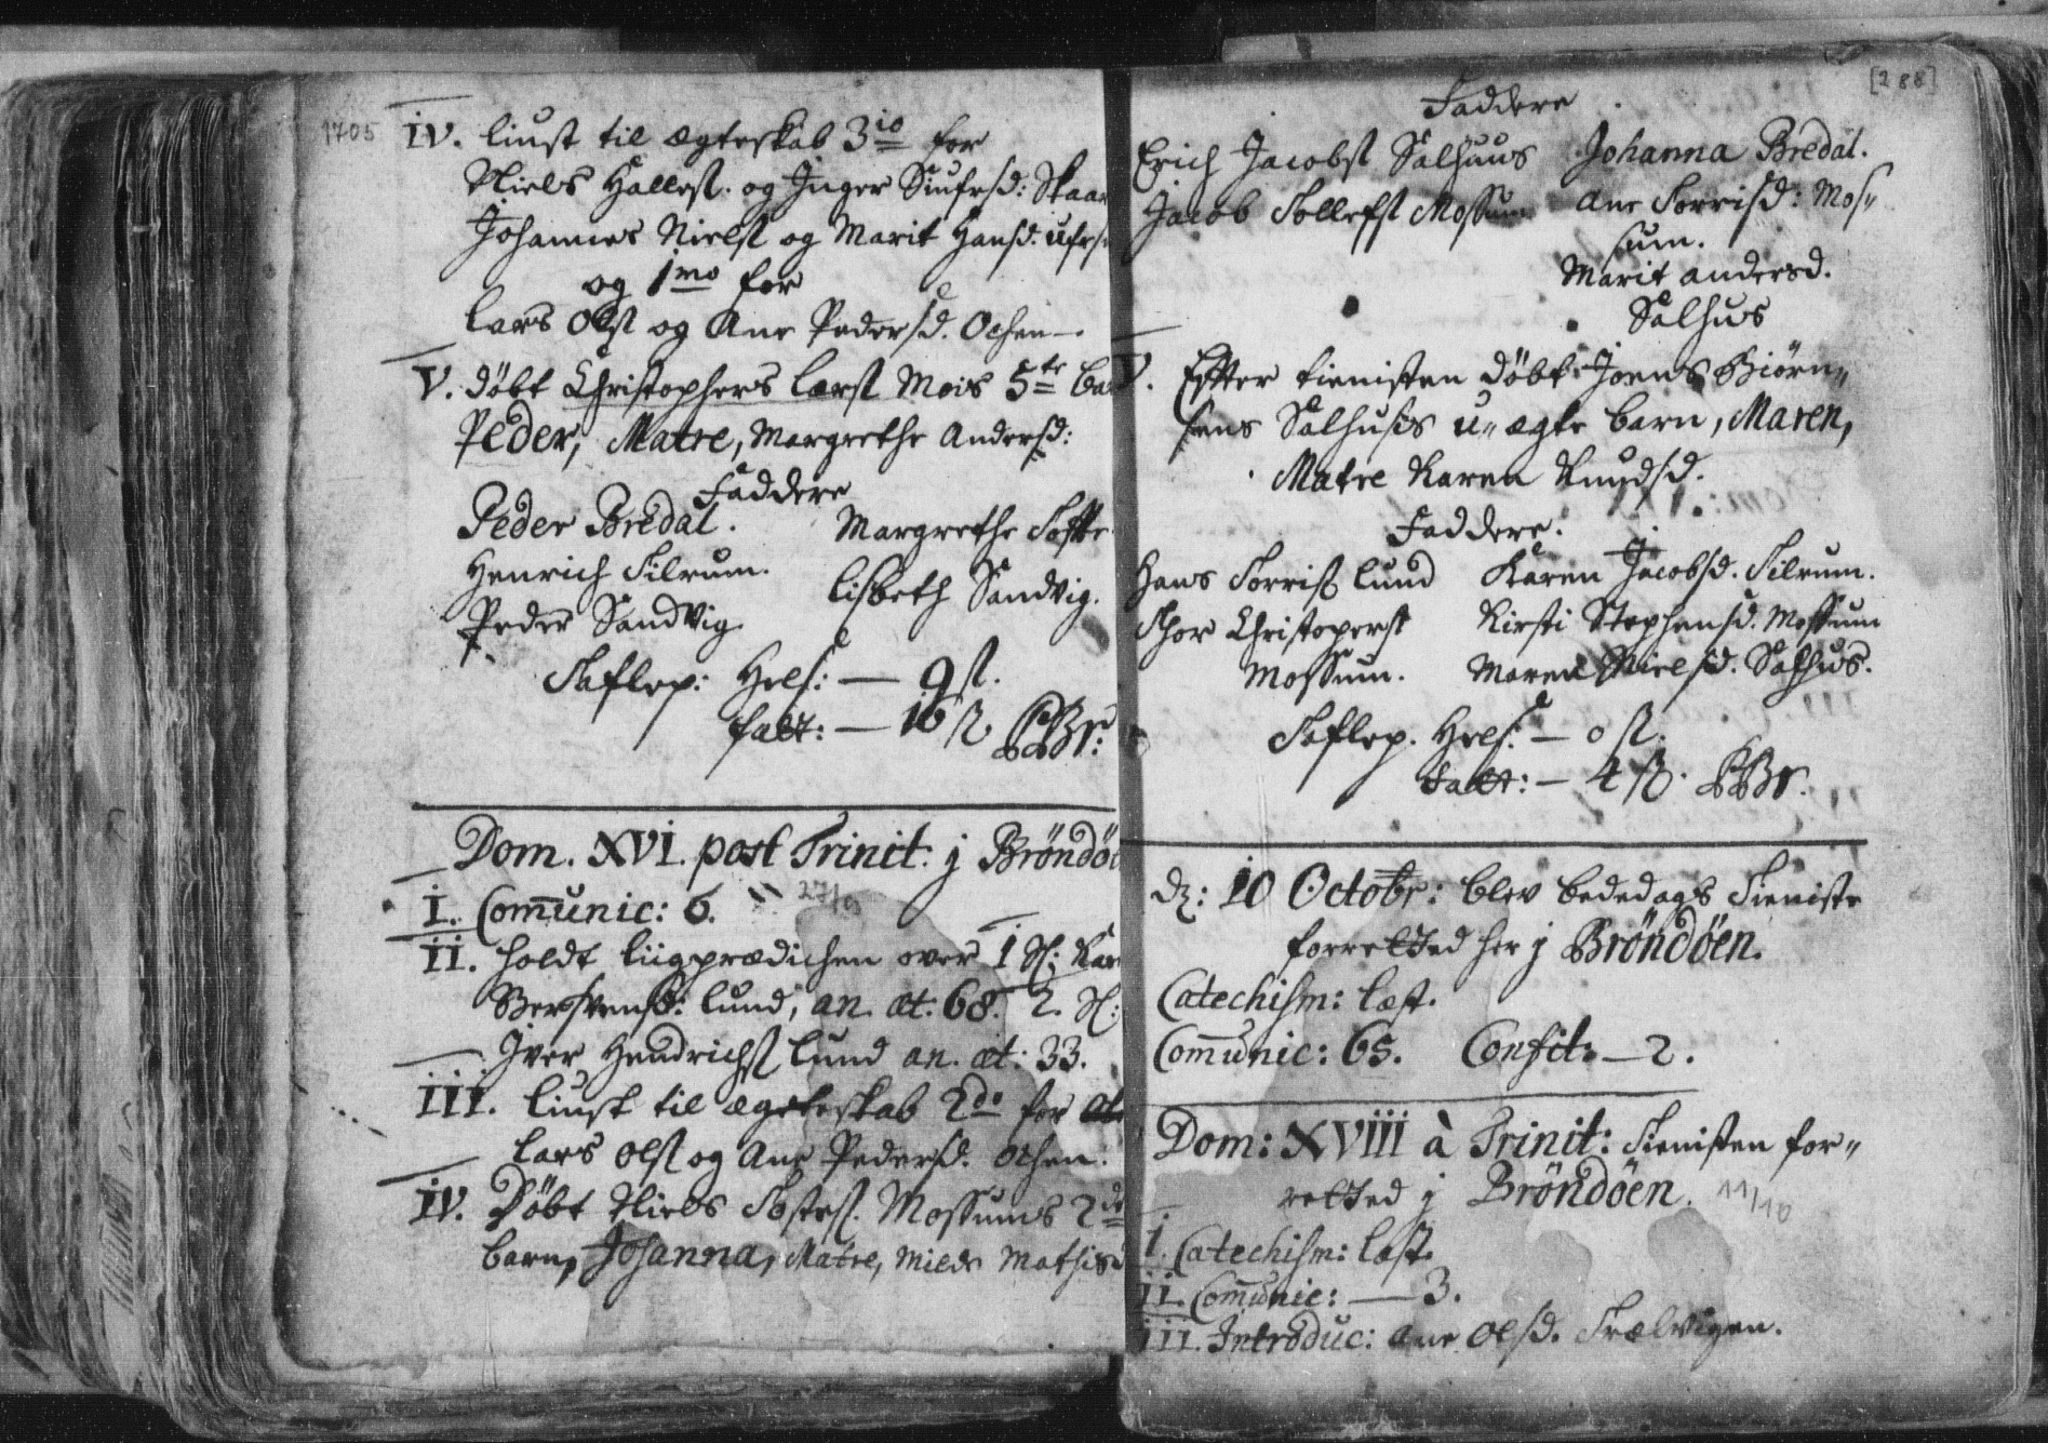 1705
IV. liust til ægteskab 3io for
Niels Hallest. og Inger Siufrsd: Skaar
Johannes Nielst og Marit Hansd.
og 1mo for
Lars Olst og Ane Pedersd. Ochen
V. døbt Christophers Larst Mois 5te ba
Peder, Matre, Margrethe Andersd:
Faddere
Peder Bredal. Margrethe
Henrich Tilrum. Lisbeth Sandvig.
Peder Sandvig
Taflep: Hres: — 9 st.
falt: — 16 ß PBr:
Dom. XVI. post Trinit: j Bröndö
I. Com̄unic: 6. 27/9
II. holdt liigprædichen over 1 Sl: Kar
lund, an. æt: 68. 2. Sl:
Iver Hendrichst lund an. æt: 33.
III. liust til ægteskab 2do for
Lars Olst og Ane Pedersd. Ochen.
IV. Døbt Niels Mossums 2de
barn, Johanna, Matre, Milde Mathisd
[288]
Faddere
Erich Jacobst Salhuus Johanna Bredal.
Jacob Tollefst Mossum Ane Torrisd: Mos„
sum.
Marit Andersd.
Salhus
V. Effter tienisten døbt Joens Biørn„
sens Salhusis u„ægte barn, Maren,
Matre Karen Knudsd.
Faddere.
Hans Torrist lund Karen Jacobsd. Tilrum.
Thor Christoperst Kirsti Stephensd. Mossum
Mossum. Maren Nielsd. Salhus.
Taflep. Hres: — 0 st.
falt: — 4 ß. PBr.
dz: 10 Octobr: blev bededags Tieniste
forretted her j Bröndöen.
Catechism: læst.
Com̄unic: 65. Confit: — 2.
Dom: XVIII à Trinit: Tienisten for„
retted j Bröndöen. 11/10
I. Catechism: læst.
II. Com̄unic: — 3.
III. Introduc: Ane Olsd. Trælvigen.